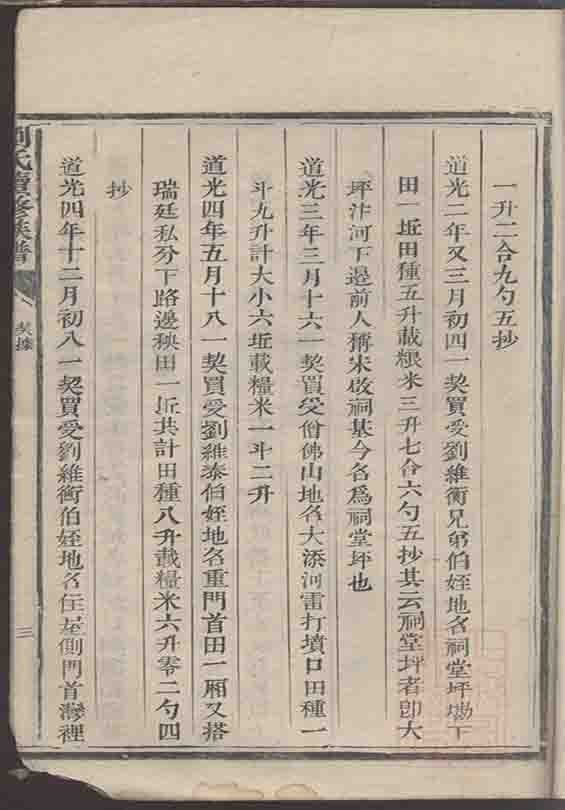 一升二合九勺五抄
道光二年又三月初四一契買受劉維衡兄弟伯姪地名祠堂坪墈下
田一坵田種五升載糧米三升七合六勺五抄其云祠堂坪者卽大
坪汼河下邊前人搆宋啟祠基今名爲祠堂坪也
道光三年三月十六一契買受僧佛山地名大添河雷打墳口田種一
斗九升計大小六坵載糧米一斗二升
道光四年五月十八一契買受劉維泰伯姪地名重門首田一厢又搭
瑞廷私分下路邊秧田一坵共計田種八升載糧米六升零二勺四
抄
道光四年十二月初八一契買受劉維衡伯姪地名住屋側門首灣裡
劉氏續修族譜
契據
三